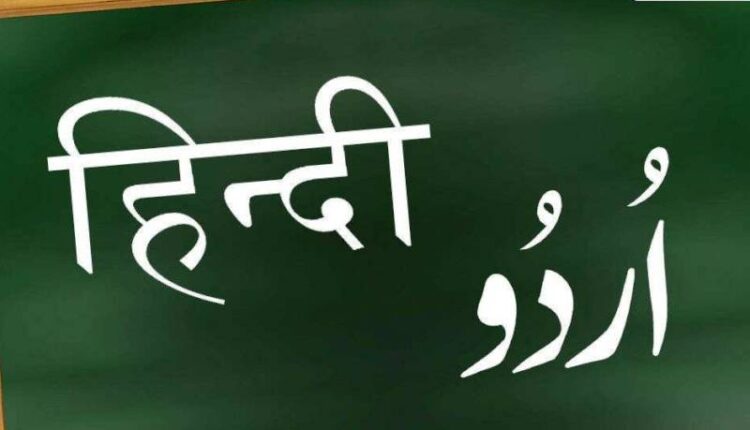 हिन्दी
اُردُو